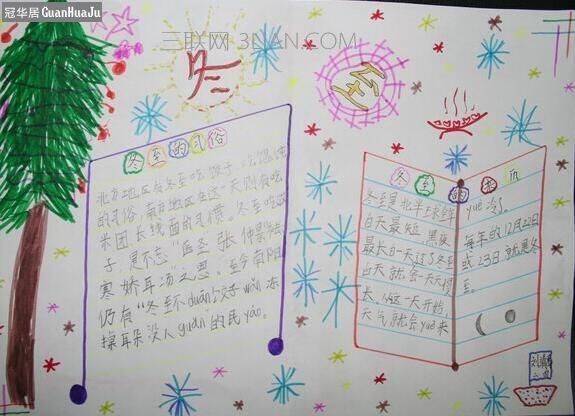 冠华居 GuanHuaJu
三联网 3LIAN.COM
冬至
冬至的习俗
北方地区有冬至吃饺子、吃馄饨
的习俗,南方地区在这一天则有吃
米团、长线面的习惯,冬至吃饺
子,是不忘"医圣"张仲景
寒娇耳汤"之恩,至今南阳
仍有"冬至不duān饺子wǎn,冻
掉耳朵没人guǎn"的民yáo。
冬至的来历
冬至是北半球全年
白天最短、黑夜
最长的一天,过了冬至
白天就会一天天
长,从这一天开始
天气就会yuè来
yuè冷了。
每年的12月22日
或23日就是冬
至。